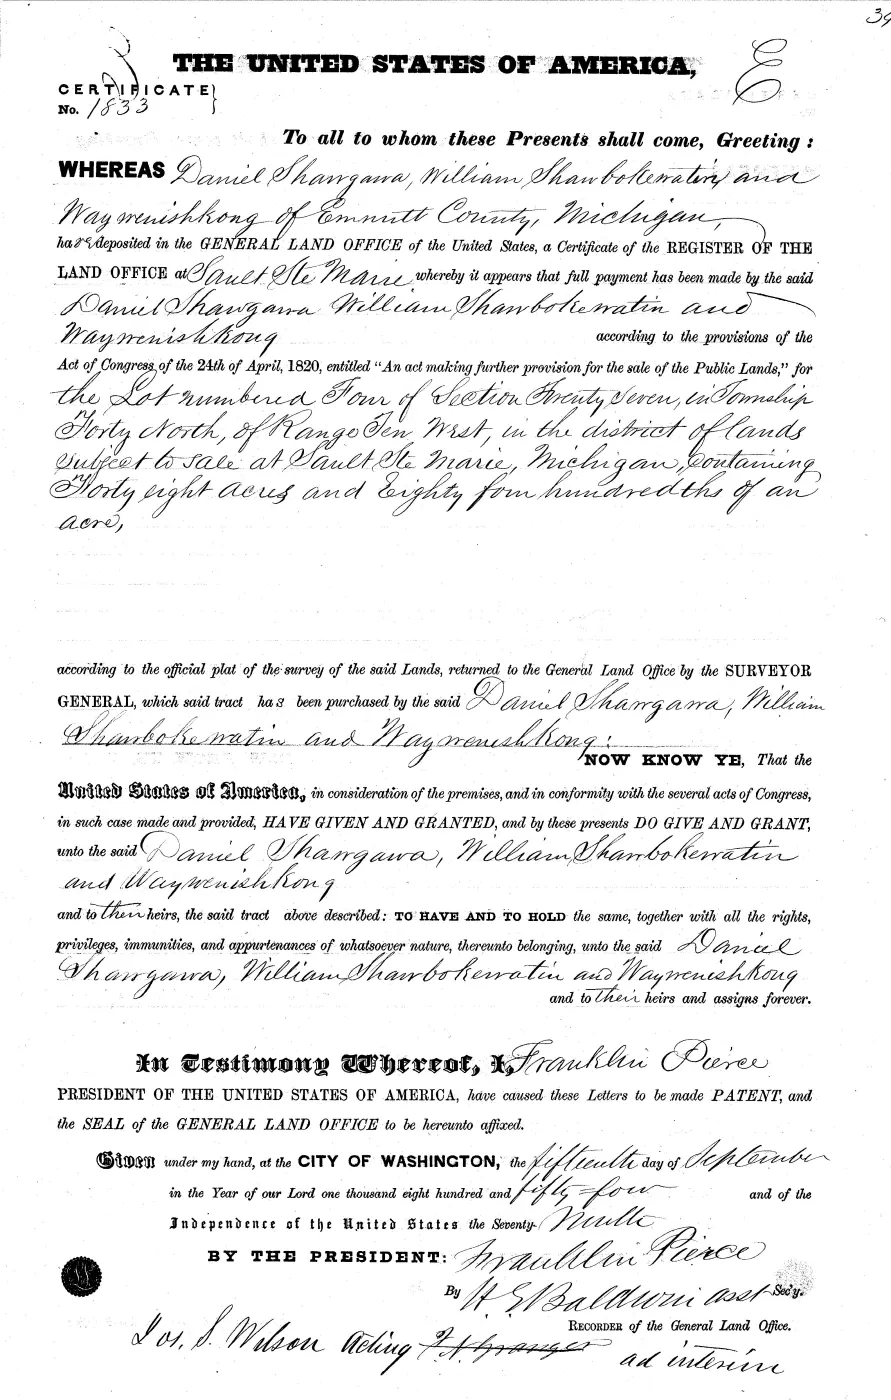 39
THE UNITED STATES OF AMERICA,
E
CERTIFICATE
No. 1833
To all to whom these Presents shall come, Greeting:
WHEREAS Daniel Shawgawa, William Shawbokewatin and
Waywenishkong of Emmett County, Michigan,
have deposited in the GENERAL LAND OFFICE of the United States, a Certificate of the REGISTER OF THE
LAND OFFICE at Sault Ste Marie whereby it appears that full payment has been made by the said
Daniel Shawgawa William Shawbokewatin and
Waywenishkong according to the provisions of the
Act of Congress of the 24th of April, 1820, entitled "An act making further provision for the sale of the Public Lands," for
the Lot numbered Four of Section Twenty seven, in Township
Forty North, of Range Ten West, in the district of lands
subject to sale at Sault Ste Marie, Michigan, containing
Forty eight acres and Eighty four hundredths of an
acre,
according to the official plat of the survey of the said Lands, returned to the General Land Office by the SURVEYOR
GENERAL, which said tract has been purchased by the said Daniel Shawgawa, William
Shawbokewatin and Waywenishkong:
NOW KNOW YE, That the
United States of America, in consideration of the premises, and in conformity with the several acts of Congress,
in such case made and provided, HAVE GIVEN AND GRANTED, and by these presents DO GIVE AND GRANT,
unto the said Daniel Shawgawa, William Shawbokewatin
and Waywenishkong
and to their heirs, the said tract above described: TO HAVE AND TO HOLD the same, together with all the rights,
privileges, immunities, and appurtenances of whatsoever nature, thereunto belonging, unto the said Daniel
Shawgawa, William Shawbokewatin and Waywenishkong
and to their heirs and assigns forever.
In Testimony Whereof, I, Franklin Pierce
PRESIDENT OF THE UNITED STATES OF AMERICA, have caused these Letters to be made PATENT, and
the SEAL of the GENERAL LAND OFFICE to be hereunto affixed.
Given under my hand, at the CITY OF WASHINGTON, the fifteenth day of September
in the Year of our Lord one thousand eight hundred and fifty-four and of the
Independence of the United States the Seventy-Ninth
BY THE PRESIDENT: Franklin Pierce
By H. E. Baldwin asst Sec'y.
RECORDER of the General Land Office.
Jos. S. Wilson Acting N. Granger
ad interim